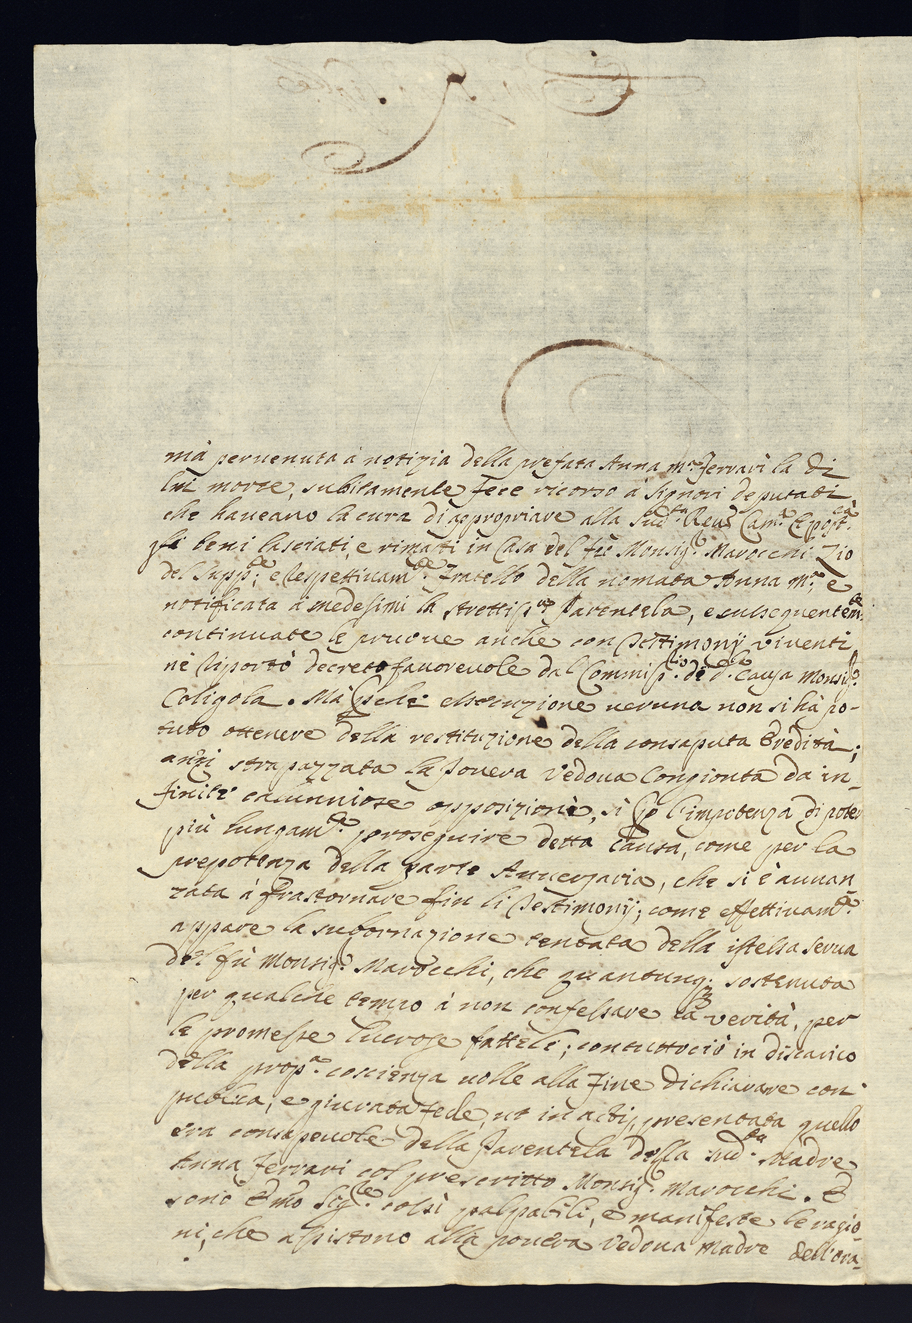 mà peruenuta à notizia della prefata Anna M.ª Ferrari la di
lui morte, subitamente fece ricorso a Signori deputati
che haueano la cura di appropriare alla sud.ª Reu. Cam.ª Epist.
gli beni lasciati, e rimasti in Casa del fù Monsig.r Marocchi Zio
del Supp.te, e respettiuam.te Fratello della nomata Anna M.ª, e
notificata à medesimi la strettiss.ma Parentela, e susseguentem.te
continuate le pruoue anche con Testimonij viuenti
nè riportò decreto fauoreuole dal Commiss.rio di d.ª Causa Monsig.r
Coligola. Mà perche essecuzione ueruna non si hà po-
tuto ottenere della restituzione della consaputa Eredità;
anzi strapazzata la Pouera Vedoua Congionta da in-
finite calunniose opposizioni, sì per l'impotenza di poter
più lungam.te proseguire detta Causa, come per la
prepotenza della parte Auuersaria, che si è auuan-
zata à frastornare fin li Testimonij; come effettiuam.te
appare la subornazione tentata della istessa Serua
del fù Monsig.r Marocchi, che quantunq. sostenuta
per qualche tempo à non confessare la verità, per
le promesse lucrose fatteli; contuttociò in discarico
della prop.ª coscienza uolle alla fine dichiarare con
publica, e giurata fede, ut in actis, presentata quello
era consapeuole della Parentela della sud.ta Madre
Anna Ferrari col prescritto Monsig.r Marocchi. E
sono Emo Sig.re così palpabili, e manifeste le ragio-
ni, che assistono alla pouera Vedoua Madre dell'ora-